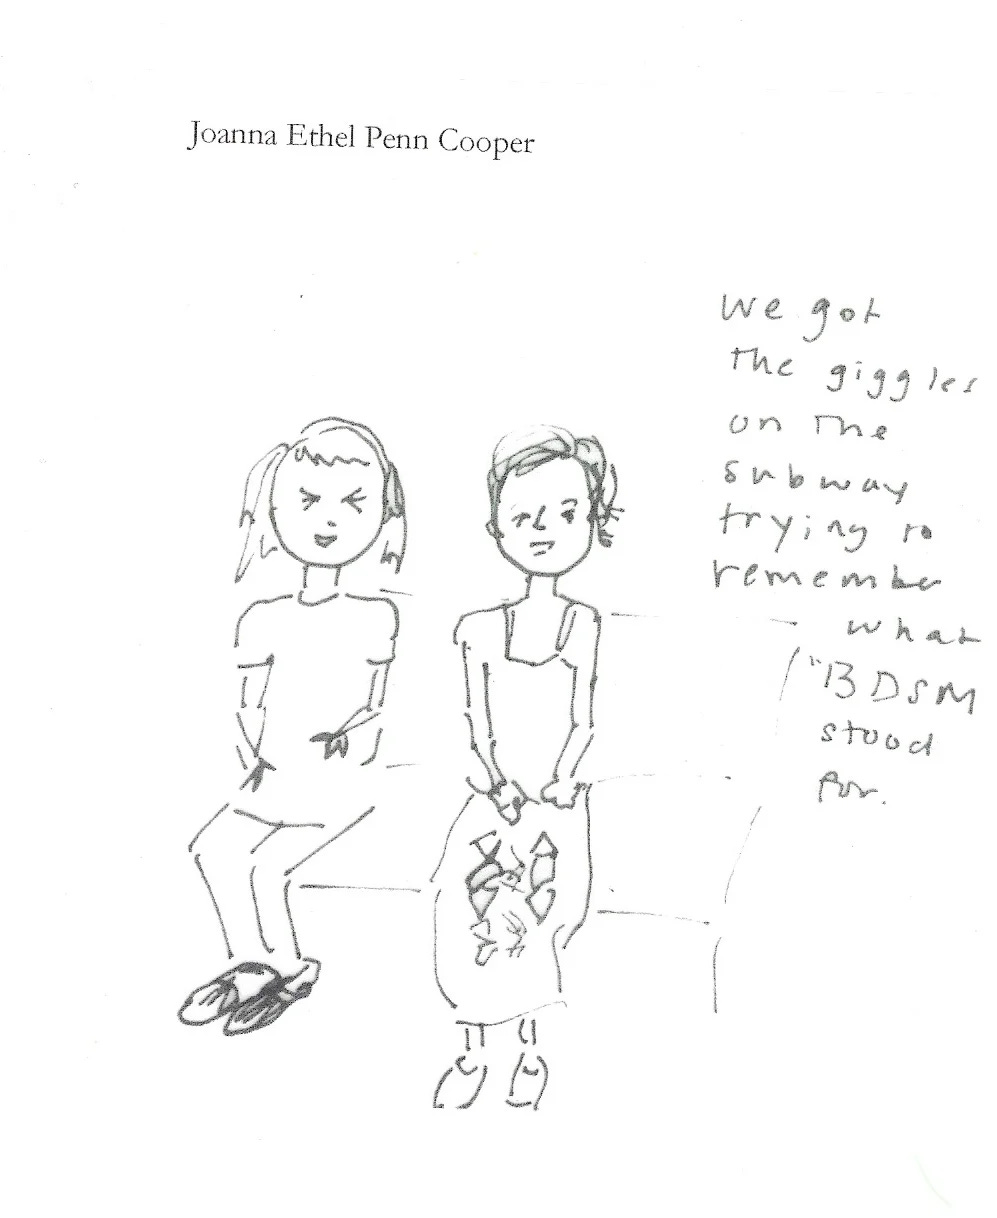 Joanna Ethel Penn Cooper
We got
the giggles
on the
subway
trying to
remember
what
"BDSM
stood
for.